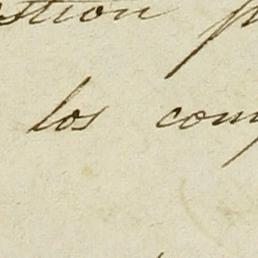 stion p
los com